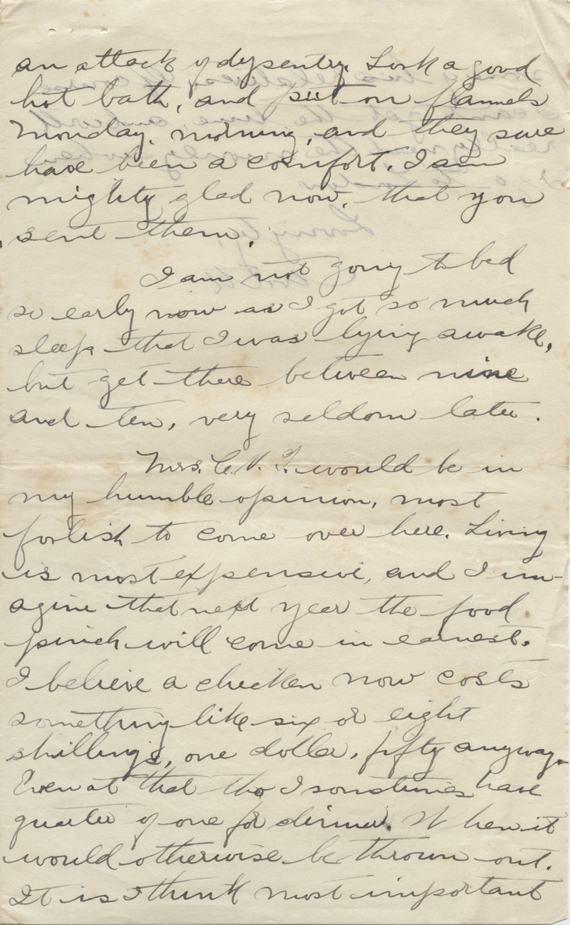 an attack of dysentry. Took a good
hot bath, and put on flannels
Monday, morning, and they sure
have been a comfort. I am
mighty glad now, that you
sent them.
I am not going to bed
so early now as I got so much
sleep that I was lying awake,
but get there between nine
and ten, very seldom later.
Mrs. C. V. I. would be in
my humble opinion, most
foolish to come over here. Living
is most expensive, and I im-
agine that next year the food
pinch will come in earnest.
I believe a chicken now costs
something like six or eight
shillings, one dollar, fifty anyway.
Even at that tho I sometimes have
quarter of one for dinner. When it
would otherwise be thrown out.
It is I think most important